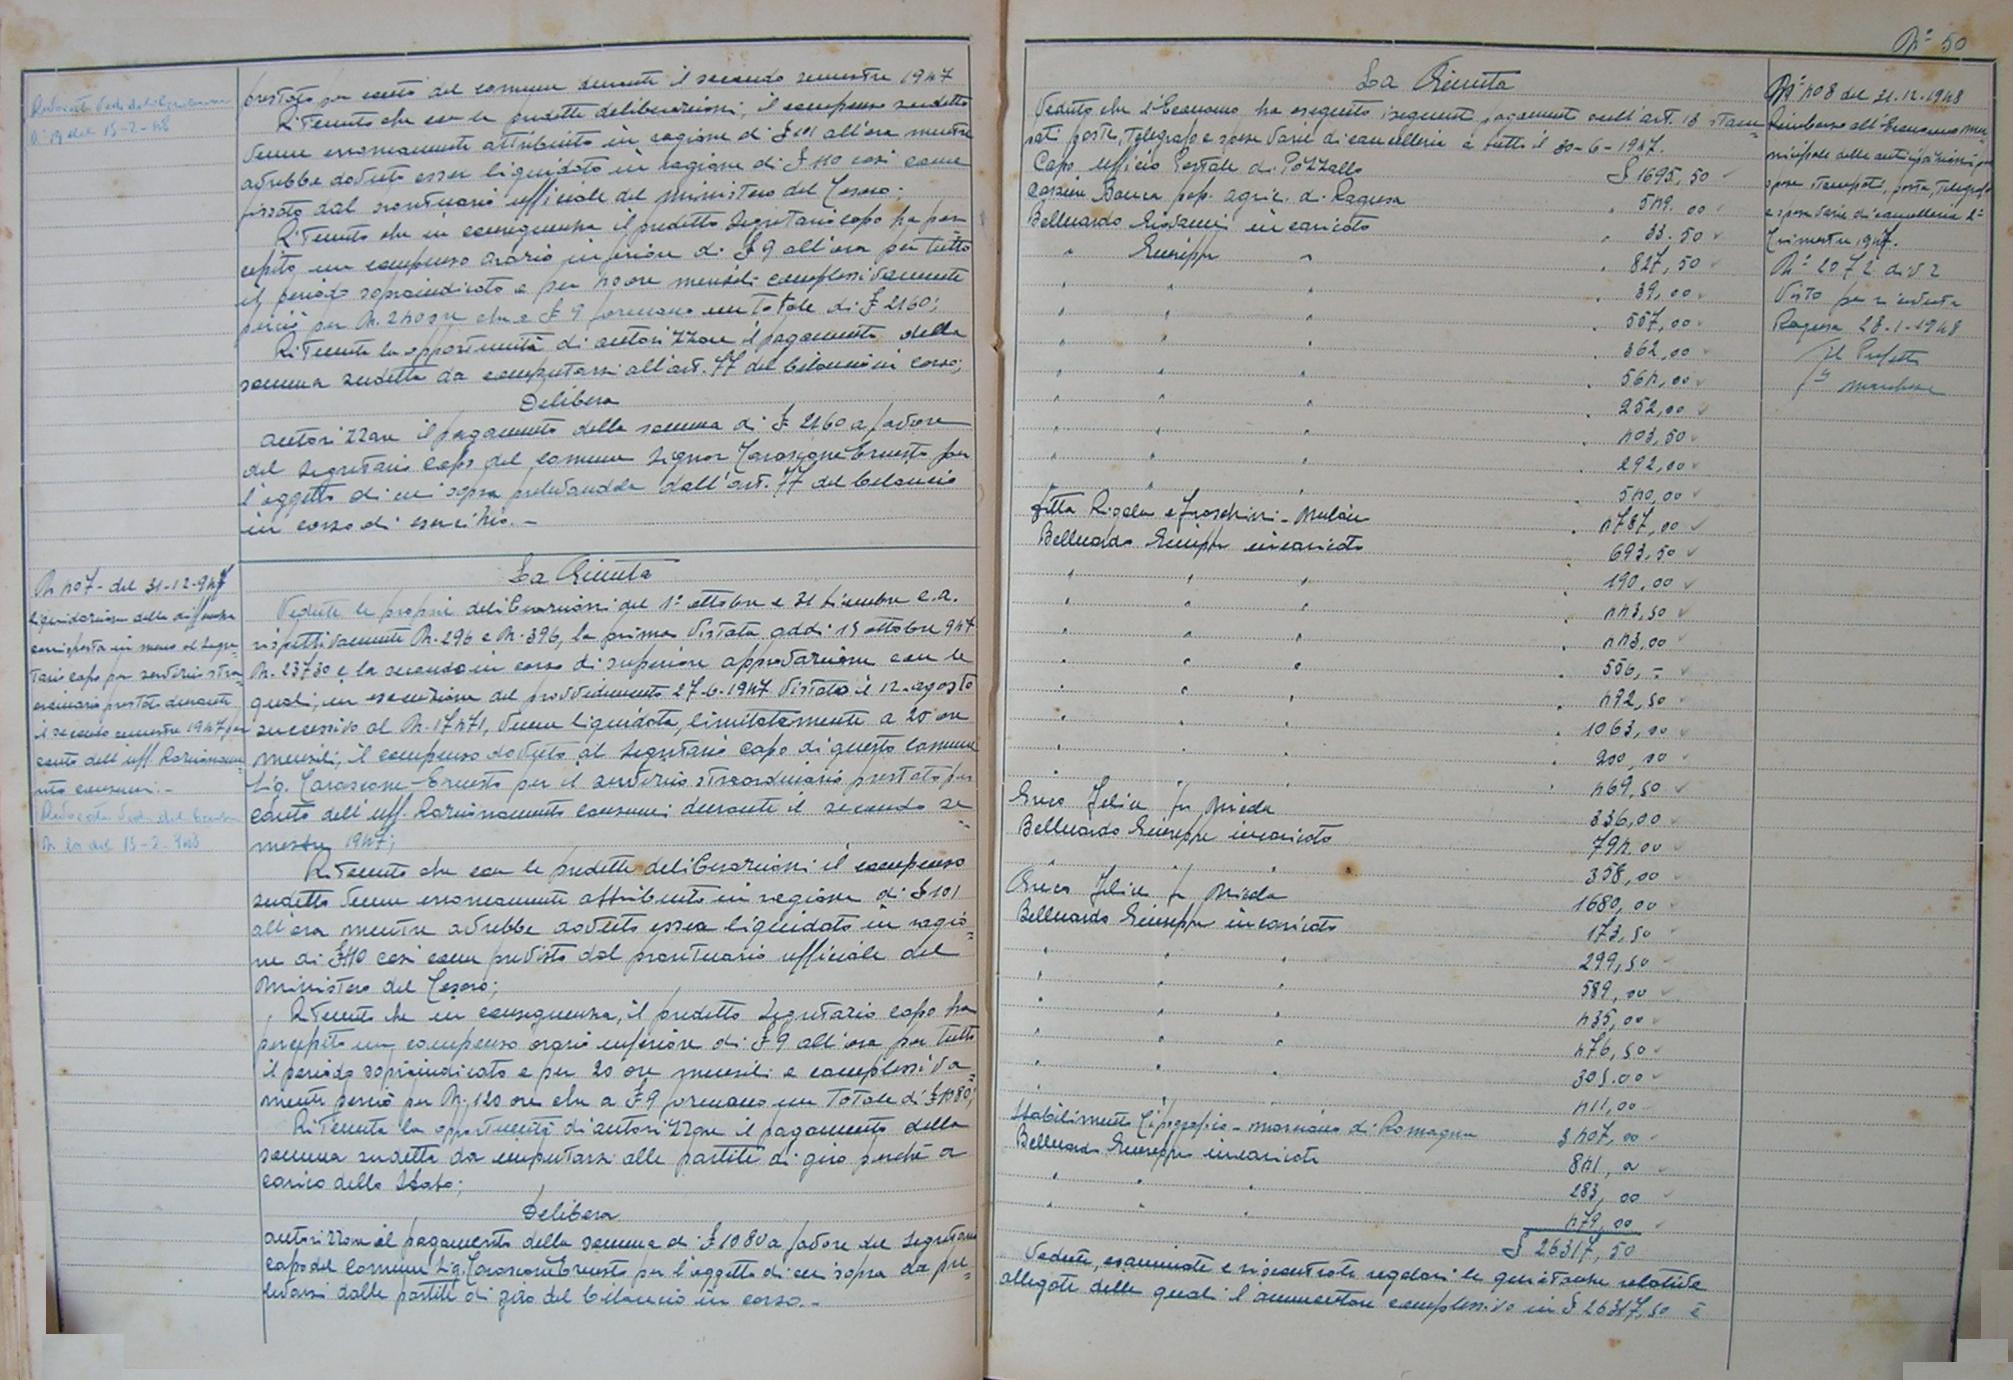 prestato per conto del comune durante il secondo semestre 1947
Ritenuto che con le predette deliberazioni, il compenso sudetto
venne erroneamente attribuito in ragione di £ 101 all'ora mentre
avrebbe dovuto esser liquidato in ragione di £ 110 così come
fissato dal prontuario ufficiale del ministero del Tesoro;
Ritenuto che in conseguenza il predetto Segretario capo ha per=
cepito un compenso orario inferiore di £ 9 all'ora per tutto
il periodo sopraindicato e per 40 ore mensili complessivamente
perciò per N. 240 ore che a £ 9 formano un totale di £ 2160;
Ritenuta la opportunità di autorizzare il pagamento della
somma sudetta da computarsi all'art. 77 del bilancio in corso;
Delibera
autorizzare il pagamento della somma di £ 2160 a favore
del Segretario Capo del comune Signor Carascione Ernesto per
l'oggetto di cui sopra prelevandola dall'art. 77 del bilancio
in corso di esercizio. -
N 407 - del 31-12-947
liquidazione della differenza
corrisposta in meno al Segre=
tario capo per servizio stra=
ordinario prestato durante
il secondo semestre 1947 per
conto dell'uff. Razionamen=
to consumi. -
La Giunta
Vedute le proprie deliberazioni del 1° ottobre e 31 dicembre c.a.
rispettivamente N. 296 e N. 396, la prima vistata addì 15 ottobre 947
N. 23730 e la seconda in corso di superiore approvazione con le
quali, in esecuzione del provvedimento 27-6-1947 vistato il 12 agosto
successivo al N. 17471, venne liquidato, limitatamente a 20 ore
mensili, il compenso dovuto al Segretario capo di questo Comune
Sig. Carascione Ernesto per il servizio straordinario prestato per
conto dell'uff. Razionamento consumi durante il secondo se=
mestre 1947;
Ritenuto che con le predette deliberazioni il compenso
sudetto venne erroneamente attribuito in ragione di £ 101
all'ora mentre avrebbe dovuto esser liquidato in ragio=
ne di £ 110 così come previsto dal prontuario ufficiale del
Ministero del Tesoro;
Ritenuto che in conseguenza, il predetto Segretario capo ha
percepito un compenso orario inferiore di £ 9 all'ora per tutto
il periodo sopraindicato e per 20 ore mensili e complessiva=
mente perciò per N. 120 ore che a £ 9 formano un totale di £ 1080;
Ritenuta la opportunità di autorizzare il pagamento della
somma sudetta da imputarsi alle partite di giro perchè a
carico dello Stato;
Delibera
autorizzare il pagamento della somma di £ 1080 a favore del Segretario
capo del Comune Sig. Carascione Ernesto per l'oggetto di cui sopra da pre=
levarsi dalle partite di giro del bilancio in corso. -
N° 50
La Giunta
Veduto che l'Economo ha eseguito i seguenti pagamenti sull'art. 18 stam=
pati, posta, telegrafo e spese varie di cancelleria a tutto il 30-6-1947.
Capo ufficio Postale di Pozzallo £ 1695,50
Cassiere Banca pop. agric. di Ragusa " 549.00
Belluardo Giovanni incaricato " 33.50
" Giuseppe " " 827,50
" " " " 39,00
" " " " 557,00
" " " " 362,00
" " " " 564,00
" " " " 252,00
" " " " 403,50
" " " " 292,00
" " " " 540,00
Ditta Rigola e Franchini - Milano " 4787,00
Belluardo Giuseppe incaricato " 693,50
" " " " 190,00
" " " " 443,50
" " " " 443,00
" " " " 556,-
" " " " 492,50
" " " " 1063,00
" " " " 200,00
" " " " 469,50
Greco Felice fu Nicola 336,00
Belluardo Giuseppe incaricato 794.00
" " " 358,00
Greco Felice fu Nicola 1680,00
Belluardo Giuseppe incaricato 173,50
" " " 299,50
" " " 589,00
" " " 435,00
" " " 476,50
" " " 305.00
" " " 411,00
Stabilimento Tipografico - Marciano di Romagna 3407,00
Belluardo Giuseppe incaricato 841,00
" " " 283,00
" " " 479,00
£ 26317,50
Vedute, esaminate e riscontrate regolari le quietanze relative
allegate delle quali l'ammontare complessivo in £ 26317,50 è
N° 408 del 31-12-1948
Rimborso all'Economo mu=
nicipale delle anticipazioni per
spese stampati, posta, telegrafo
e spese varie di cancelleria 2°
Trimestre 1947.
N° 2072 div 2
Visto per ricevuta
Ragusa 28-1-1948
Il Prefetto